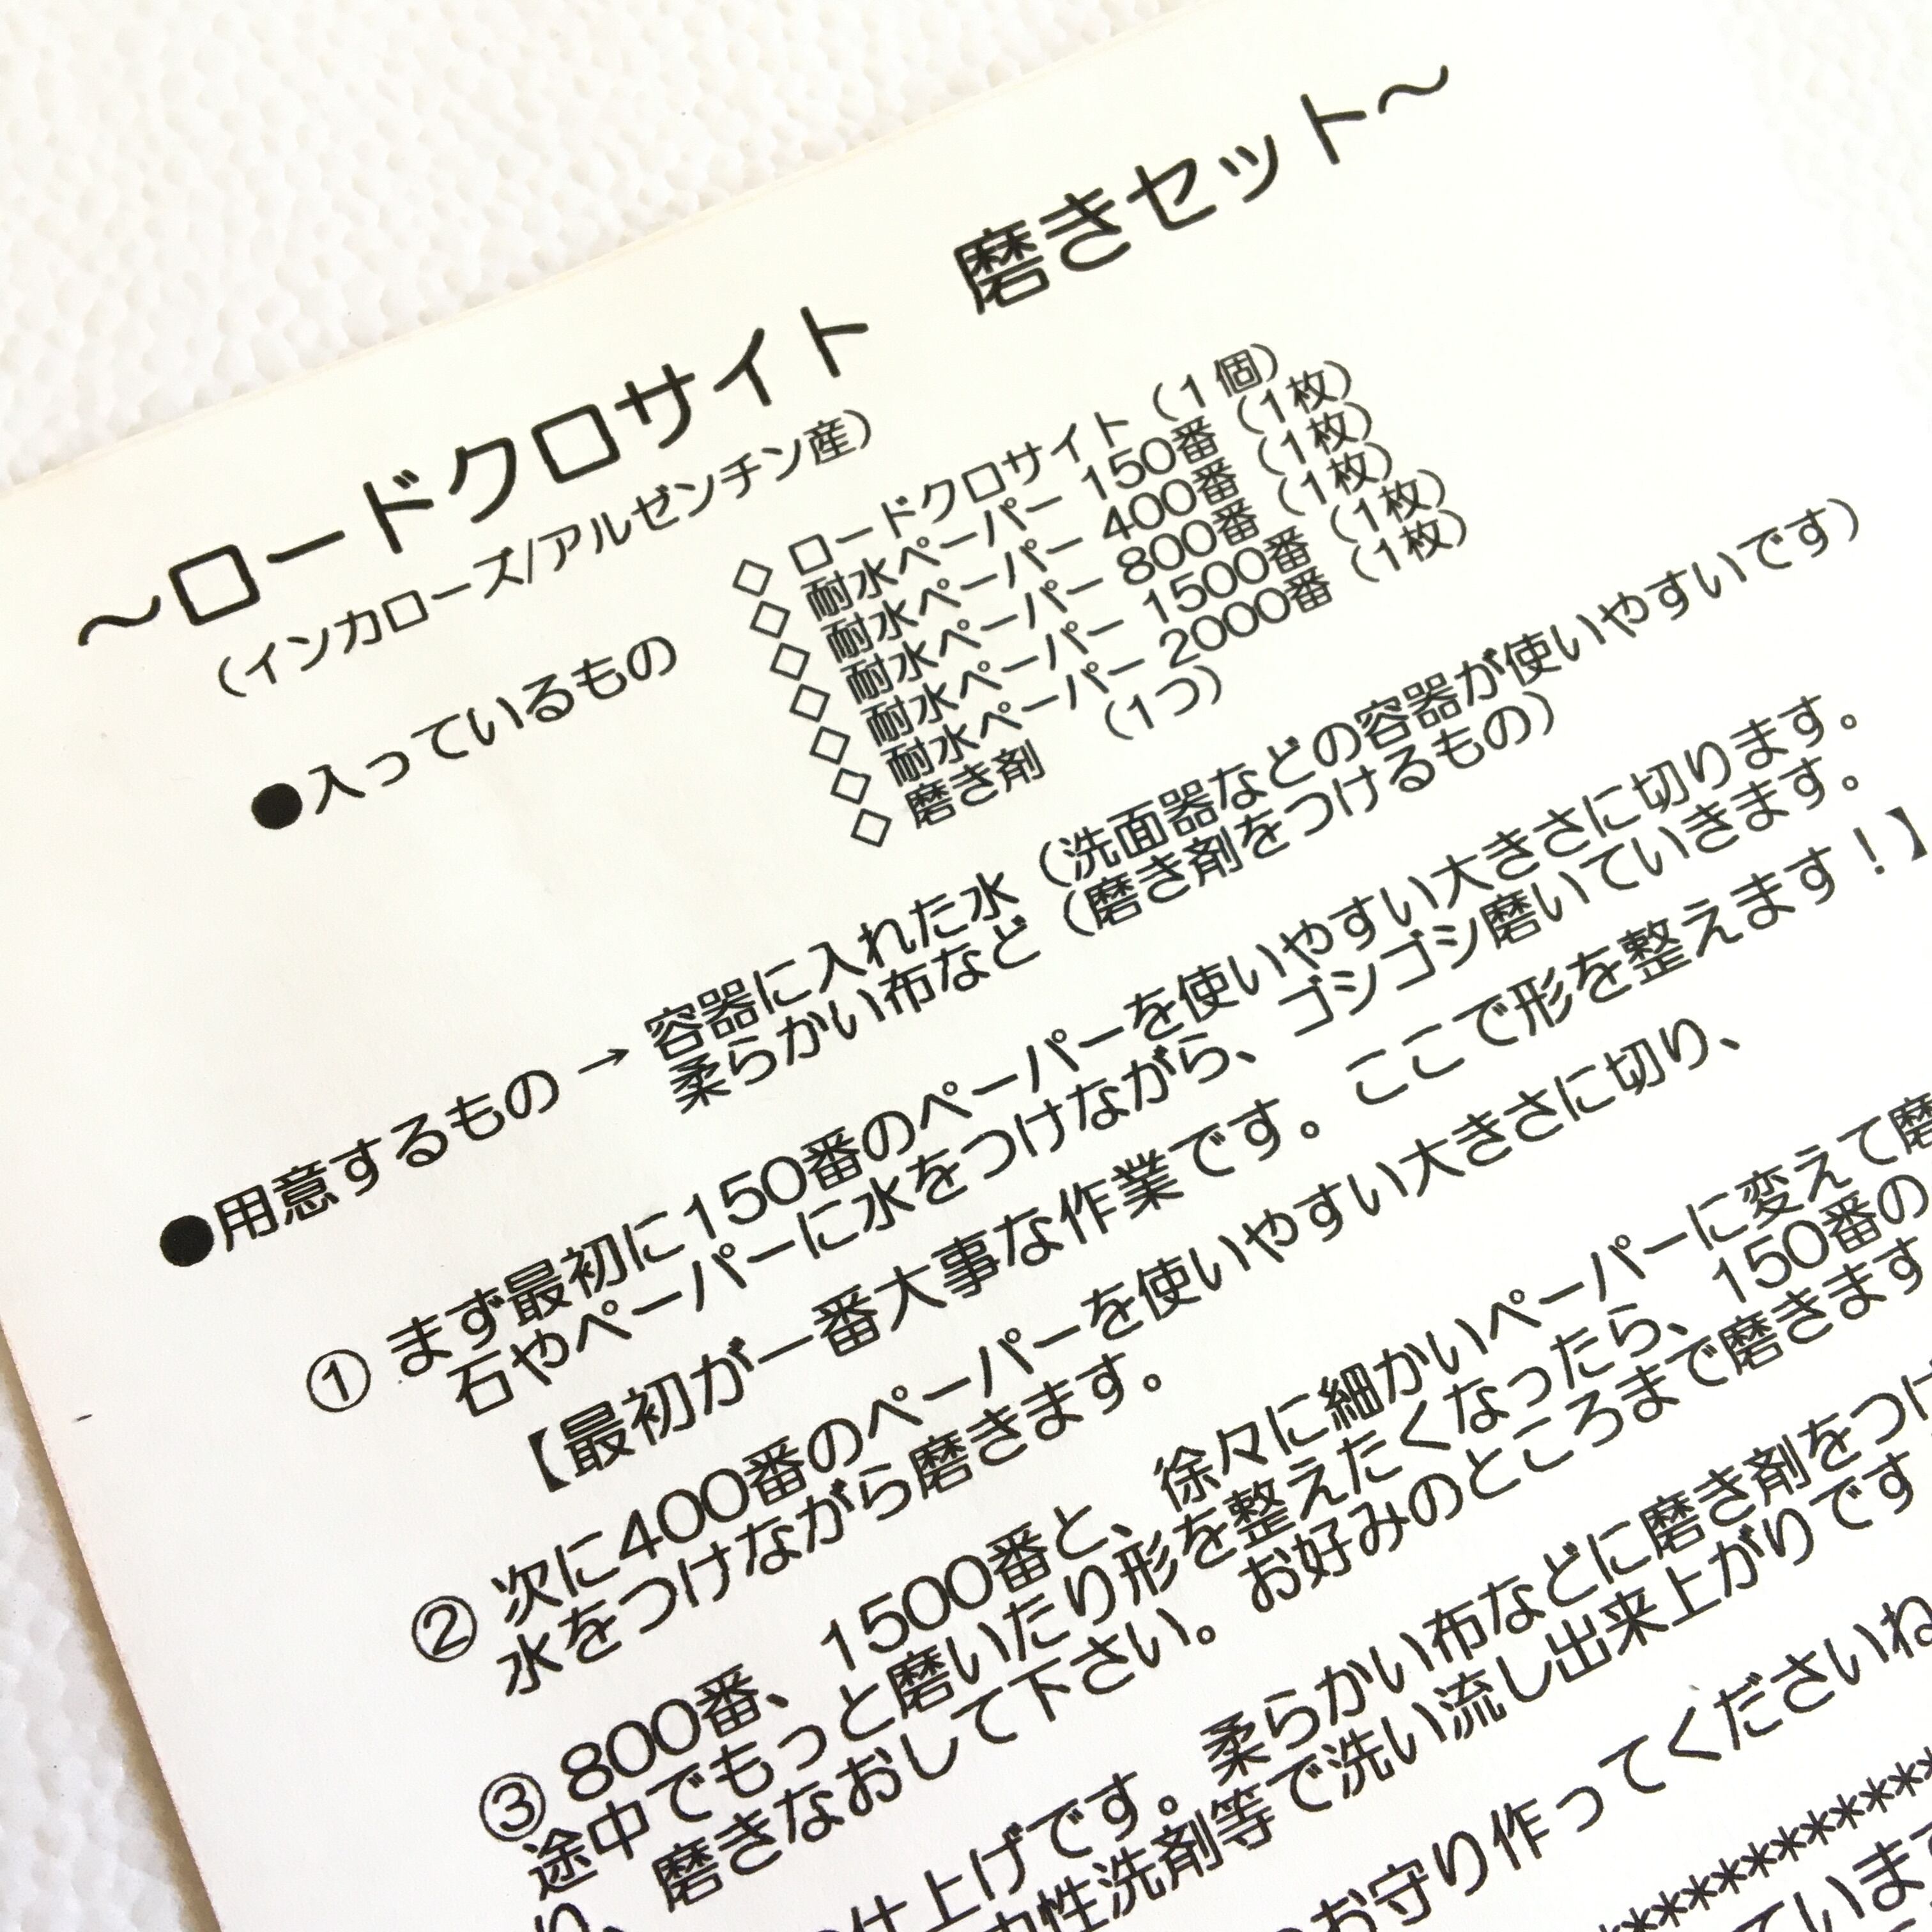 ～ロードクロサイト　磨きセット～
（インカローズ/アルゼンチン産）
●入っているもの
◇ ロードクロサイト（１個）
◇ 耐水ペーパー 150番（1枚）
◇ 耐水ペーパー 400番（1枚）
◇ 耐水ペーパー 800番（1枚）
◇ 耐水ペーパー 1500番（1枚）
◇ 耐水ペーパー 2000番（1枚）
◇ 磨き剤　（1つ）
●用意するもの → 容器に入れた水（洗面器などの容器が使いやすいです）
柔らかい布など（磨き剤をつけるもの）
① まず最初に150番のペーパーを使いやすい大きさに切ります。
石やペーパーに水をつけながら、ゴシゴシ磨いていきます。
【最初が一番大事な作業です。ここで形を整えます！】
② 次に400番のペーパーを使いやすい大きさに切り、
水をつけながら磨きます。
③ 800番、1500番と、徐々に細かいペーパーに変えて磨
途中でもっと磨いたり形を整えたくなったら、150番の
、磨きなおして下さい。お好みのところまで磨きます
仕上げです。柔らかい布などに磨き剤をつけ
中性洗剤等で洗い流し出来上がりです
お守り作ってくださいね
****************
ていま